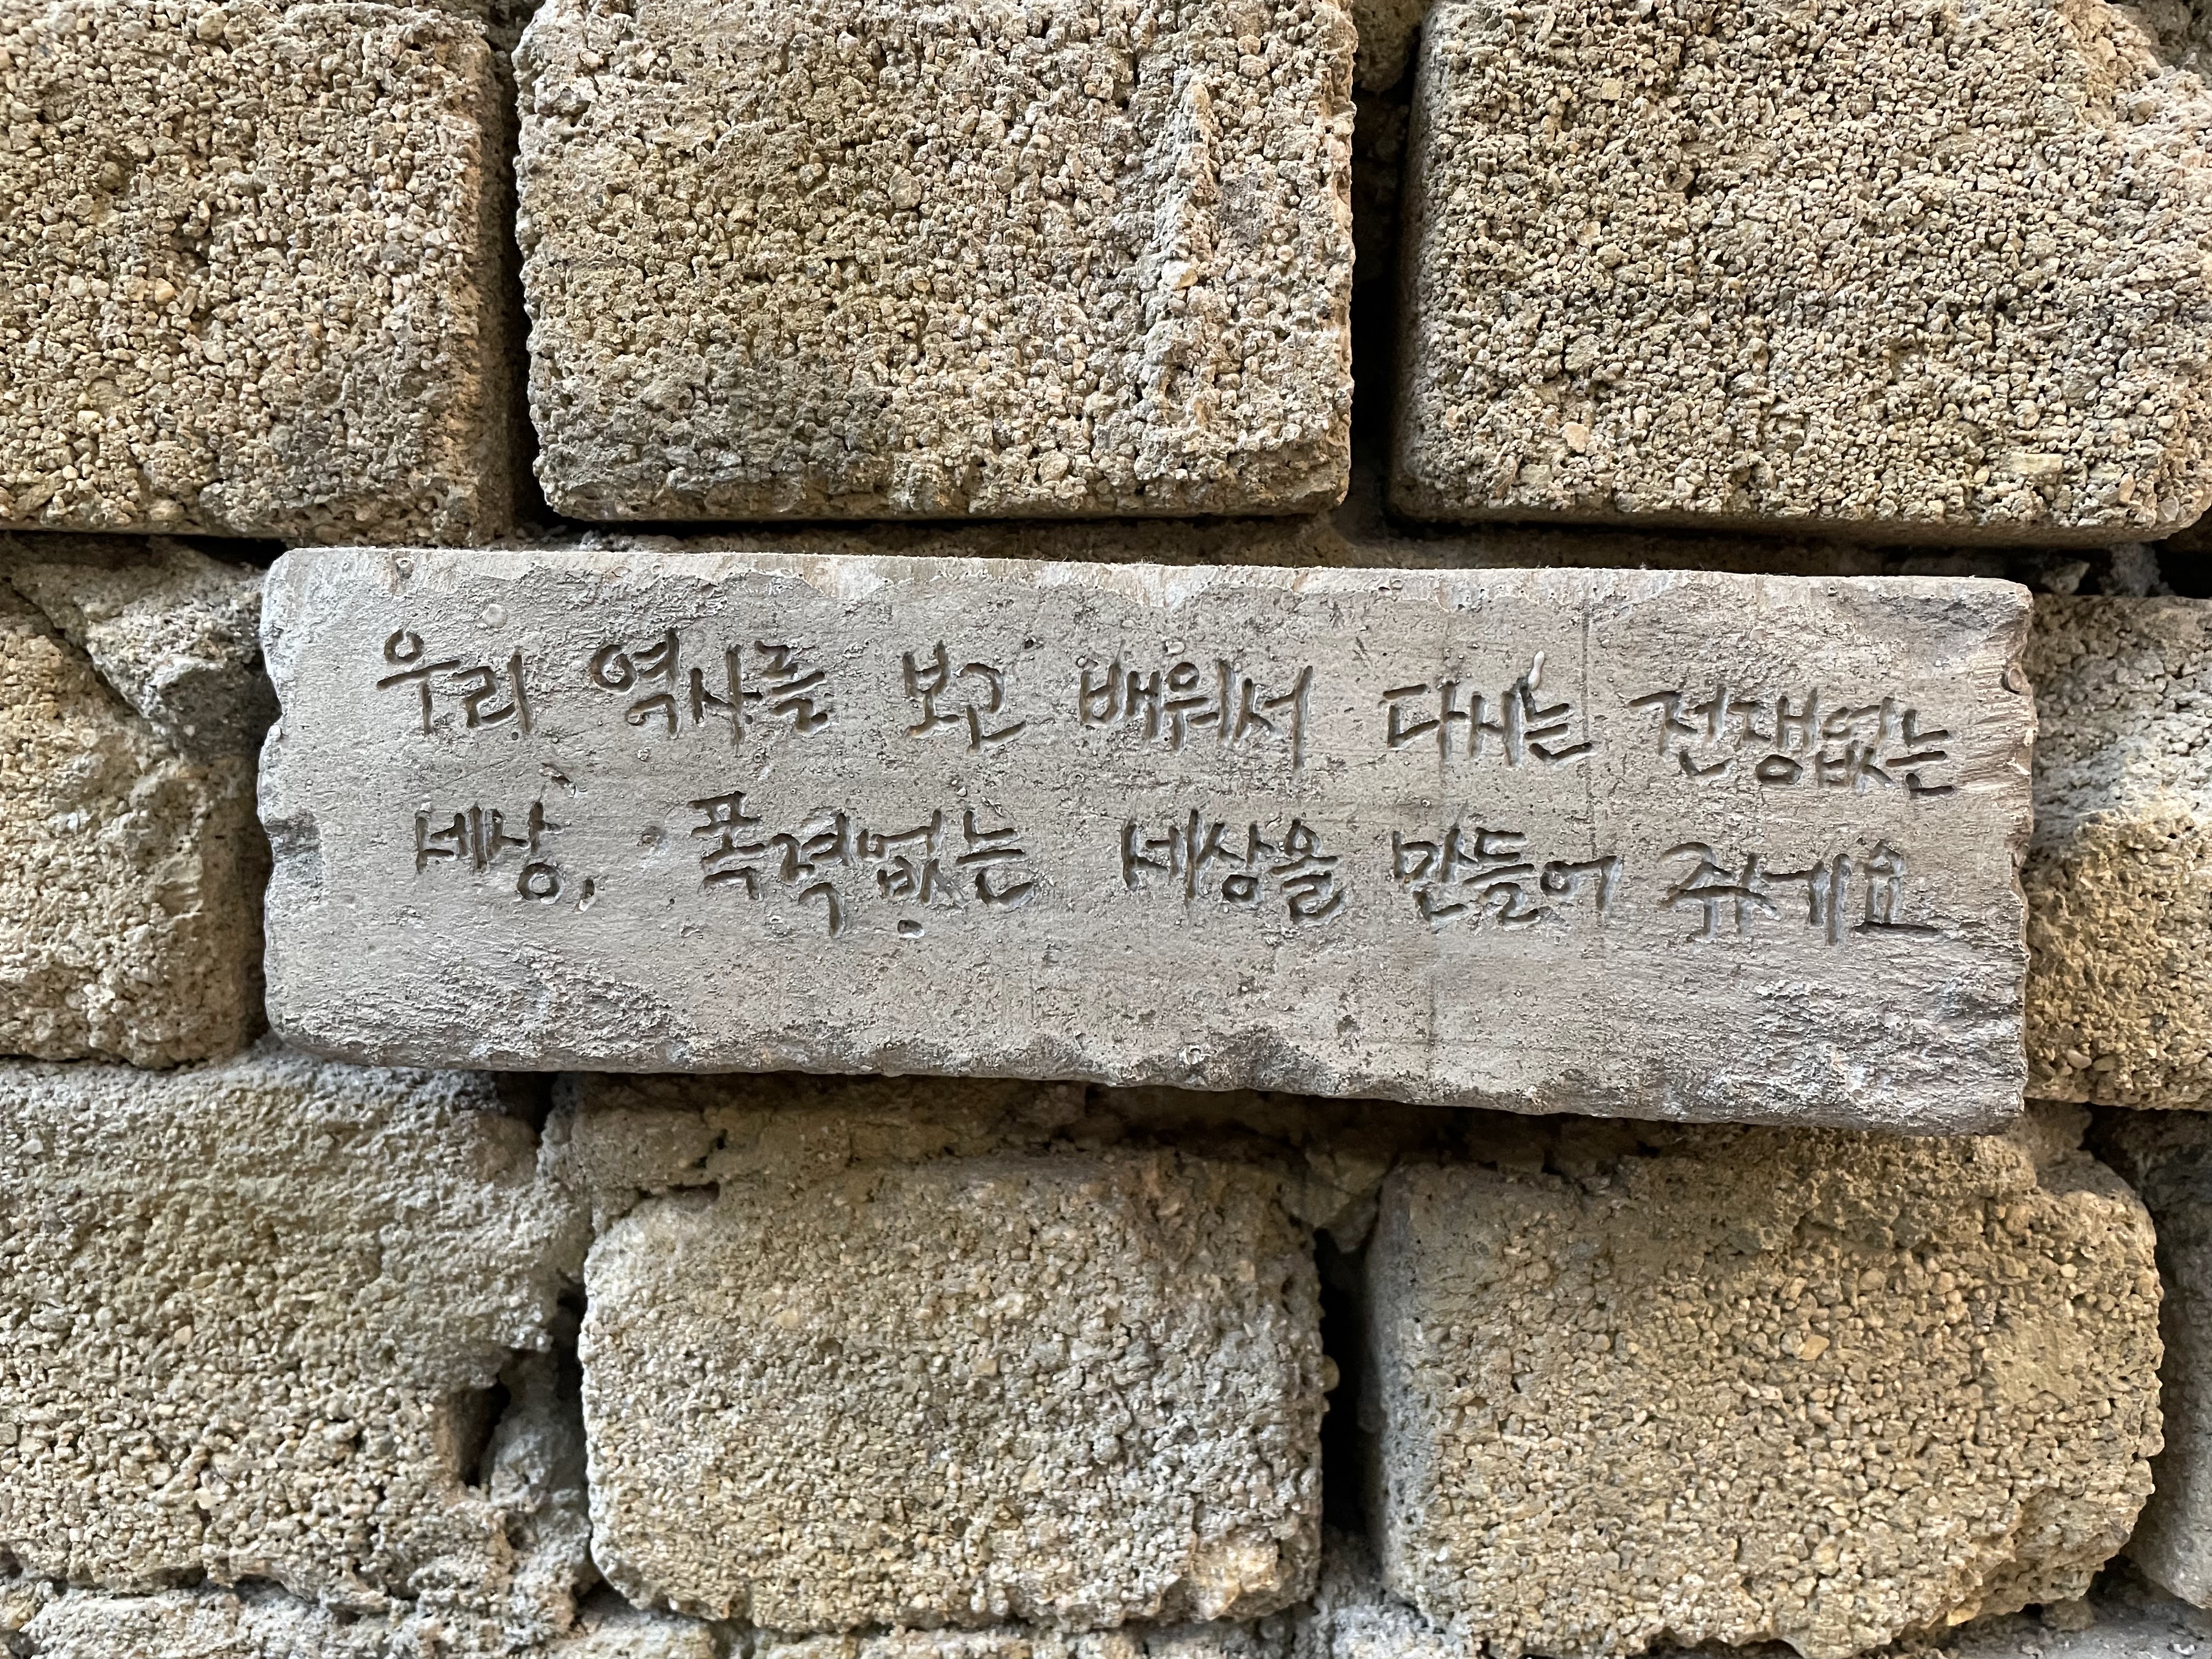 우리 역사를 보고 배워서 다시는 전쟁없는
세상, 폭력없는 세상을 만들어 쥬세요